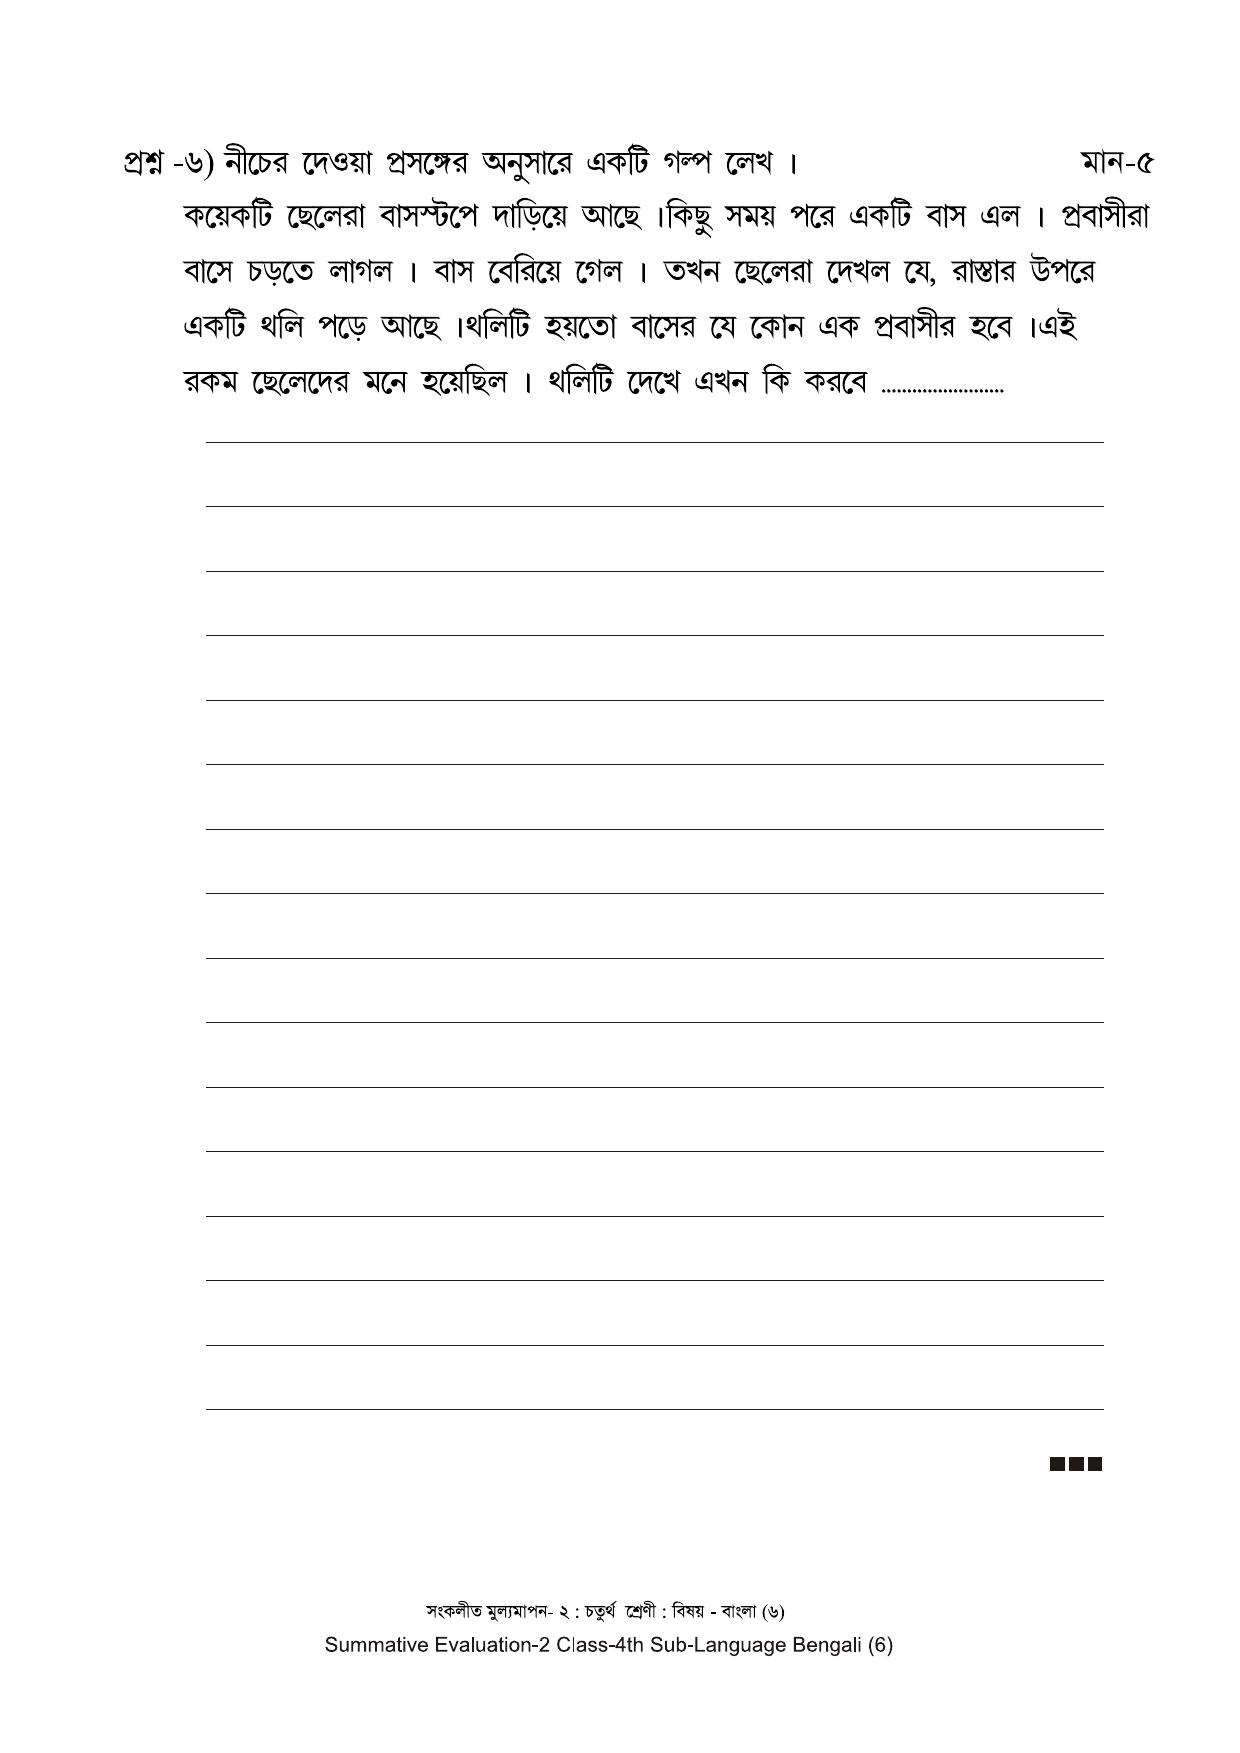 প্রশ্ন -৬) নীচের দেওয়া প্রসঙ্গের অনুসারে একটি গল্প লেখ । মান-৫
কয়েকটি ছেলেরা বাসস্টপে দাড়িয়ে আছে ।কিছু সময় পরে একটি বাস এল । প্রবাসীরা
বাসে চড়তে লাগল । বাস বেরিয়ে গেল । তখন ছেলেরা দেখল যে, রাস্তার উপরে
একটি থলি পড়ে আছে ।থলিটি হয়তো বাসের যে কোন এক প্রবাসীর হবে ।এই
রকম ছেলেদের মনে হয়েছিল । থলিটি দেখে এখন কি করবে ........................
সংকলীত মুল্যমাপন- ২ : চতুর্থ শ্রেণী : বিষয় - বাংলা (৬)
Summative Evaluation-2 Class-4th Sub-Language Bengali (6)